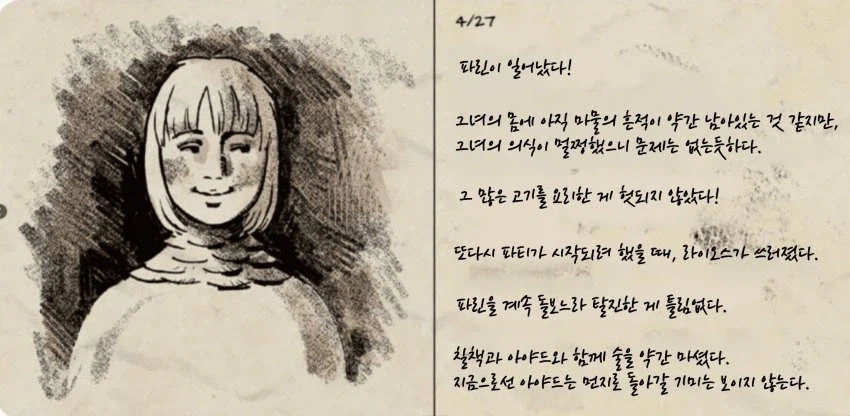 4/27
파린이 일어났다!
그녀의 몸에 아직 마물의 흔적이 약간 남아있는 것 같지만,
그녀의 의식이 멀쩡했으니 문제는 없는듯하다.
그 많은 고기를 요리한 게 헛되지 않았다!
또다시 파티가 시작되려 했을 때, 라이오스가 쓰러졌다.
파린을 계속 돌보느라 탈진한 게 틀림없다.
칠책과 아야드와 함께 술을 약간 마셨다.
지금으로선 아야드는 먼지로 돌아갈 기미는 보이지 않는다.